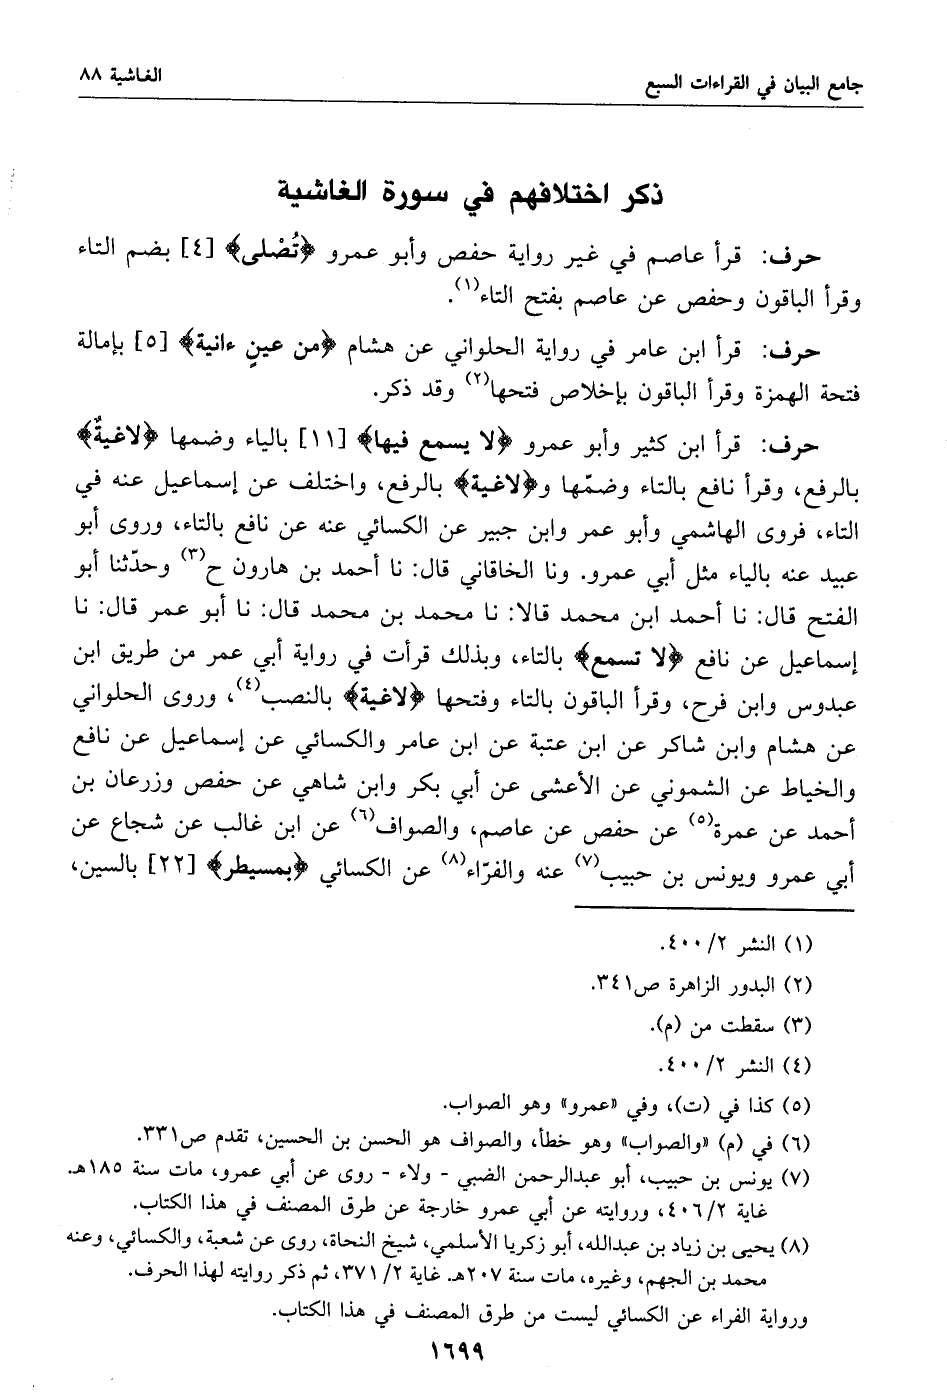 جامع البيان في القراءات السبع
الغاشية ٨٨
ذكر اختلافهم في سورة الغاشية
حرف: قرأ عاصم في غير رواية حفص وأبو عمرو ﴿تُصْلى﴾ [٤] بضم التاء
وقرأ الباقون وحفص عن عاصم بفتح التاء(١).
حرف: قرأ ابن عامر في رواية الحلواني عن هشام ﴿من عينٍ ءانية﴾ [٥] بإمالة
فتحة الهمزة وقرأ الباقون بإخلاص فتحها(٢) وقد ذكر.
حرف: قرأ ابن كثير وأبو عمرو ﴿لا يسمع فيها﴾ [١١] بالياء وضمها ﴿لاغيةٌ﴾
بالرفع، وقرأ نافع بالتاء وضمّها و﴿لاغية﴾ بالرفع، واختلف عن إسماعيل عنه في
التاء، فروى الهاشمي وأبو عمر وابن جبير عن الكسائي عنه عن نافع بالتاء، وروى أبو
عبيد عنه بالياء مثل أبي عمرو. ونا الخاقاني قال: نا أحمد بن هارون ح(٣) وحدّثنا أبو
الفتح قال: نا أحمد ابن محمد قالا: نا محمد بن محمد قال: نا أبو عمر قال: نا
إسماعيل عن نافع ﴿لا تسمع﴾ بالتاء، وبذلك قرأت في رواية أبي عمر من طريق ابن
عبدوس وابن فرح، وقرأ الباقون بالتاء وفتحها ﴿لاغية﴾ بالنصب(٤)، وروى الحلواني
عن هشام وابن شاكر عن ابن عتبة عن ابن عامر والكسائي عن إسماعيل عن نافع
والخياط عن الشموني عن الأعشى عن أبي بكر وابن شاهي عن حفص وزرعان بن
أحمد عن عمرة(٥) عن حفص عن عاصم، والصواف(٦) عن ابن غالب عن شجاع عن
أبي عمرو ويونس بن حبيب(٧) عنه والفرّاء(٨) عن الكسائي ﴿بمسيطر﴾ [٢٢] بالسين،
(١) النشر ٢/ ٤٠٠.
(٢) البدور الزاهرة ص٣٤١.
(٣) سقطت من (م).
(٤) النشر ٢/ ٤٠٠.
(٥) كذا في (ت)، وفي «عمرو» وهو الصواب.
(٦) في (م) «والصواب» وهو خطأ، والصواف هو الحسن بن الحسين، تقدم ص٣٣١.
(٧) يونس بن حبيب، أبو عبدالرحمن الضبي - ولاء - روى عن أبي عمرو، مات سنة ١٨٥هـ.
غاية ٢/ ٤٠٦، وروايته عن أبي عمرو خارجة عن طرق المصنف في هذا الكتاب.
(٨) يحيى بن زياد بن عبدالله، أبو زكريا الأسلمي، شيخ النحاة، روى عن شعبة، والكسائي، وعنه
محمد بن الجهم، وغيره، مات سنة ٢٠٧هـ. غاية ٢/ ٣٧١، ثم ذكر روايته لهذا الحرف.
ورواية الفراء عن الكسائي ليست من طرق المصنف في هذا الكتاب.
١٦٩٩